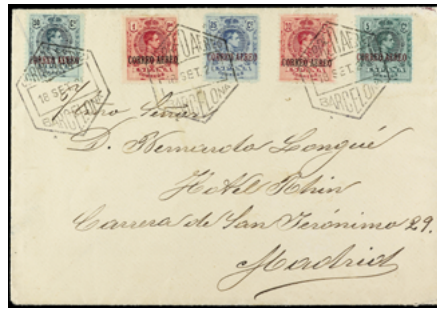 CORREO AEREO
CORREO AEREO
CORREO AEREO
CORREO AEREO
CORREO AEREO
18 SET.
BARCELONA
BARCELONA
BARCELONA
Señor
D. Bernardo Longué
Hotel Rhin
Carrera de San Jerónimo 29.
Madrid